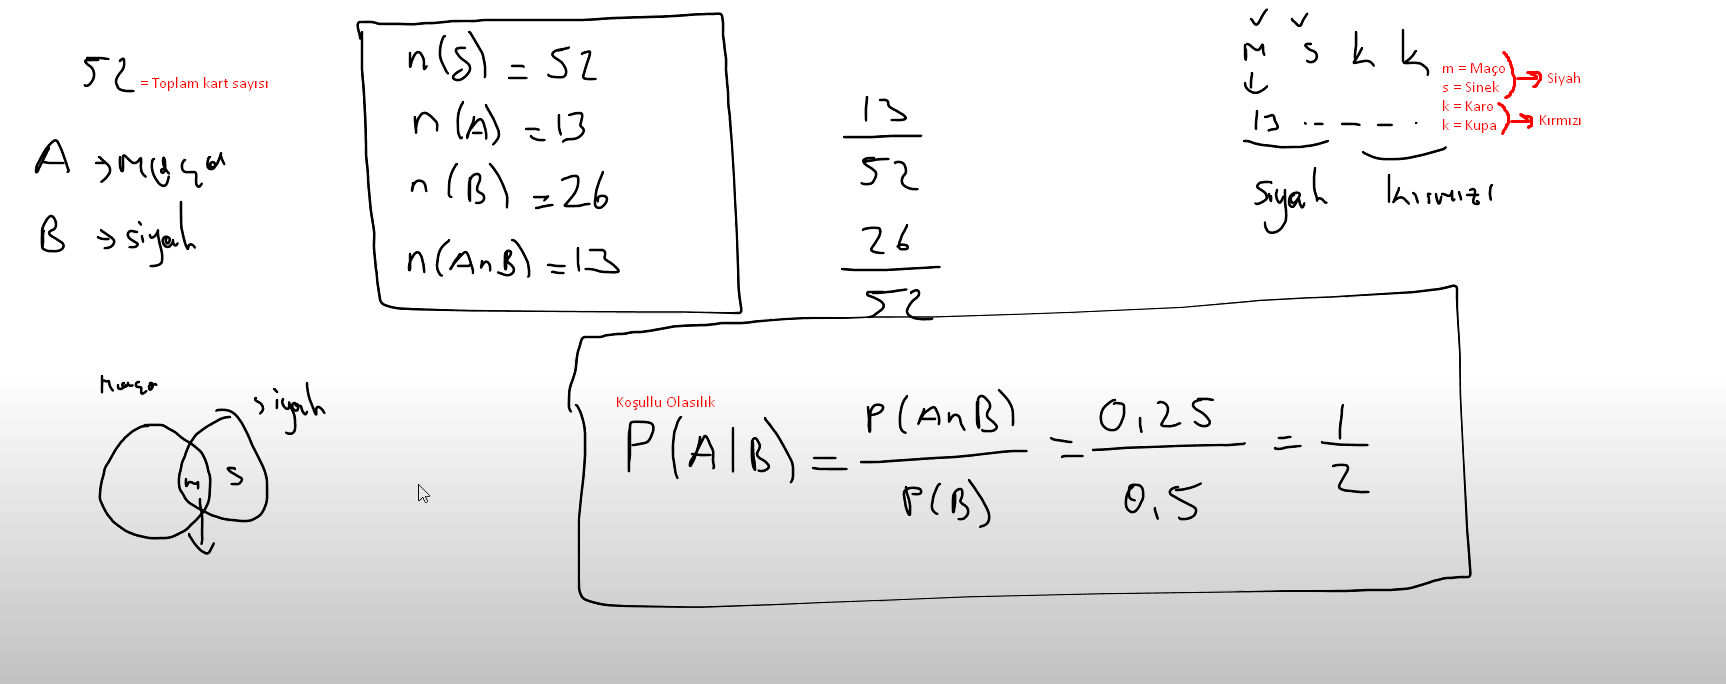 52 = Toplam kart sayısı
A → Maça
B → siyah
n(S) = 52
n(A) = 13
n(B) = 26
n(A∩B) = 13
13
52
26
52
M s k k
13 . - - - - .
siyah kırmızı
m = Maço
s = Sinek
Siyah
k = Karo
k = Kupa
Kırmızı
Maça
siyah
M S
Koşullu Olasılık
P(A|B) = P(A∩B) / P(B) = 0,25 / 0,5 = 1 / 2